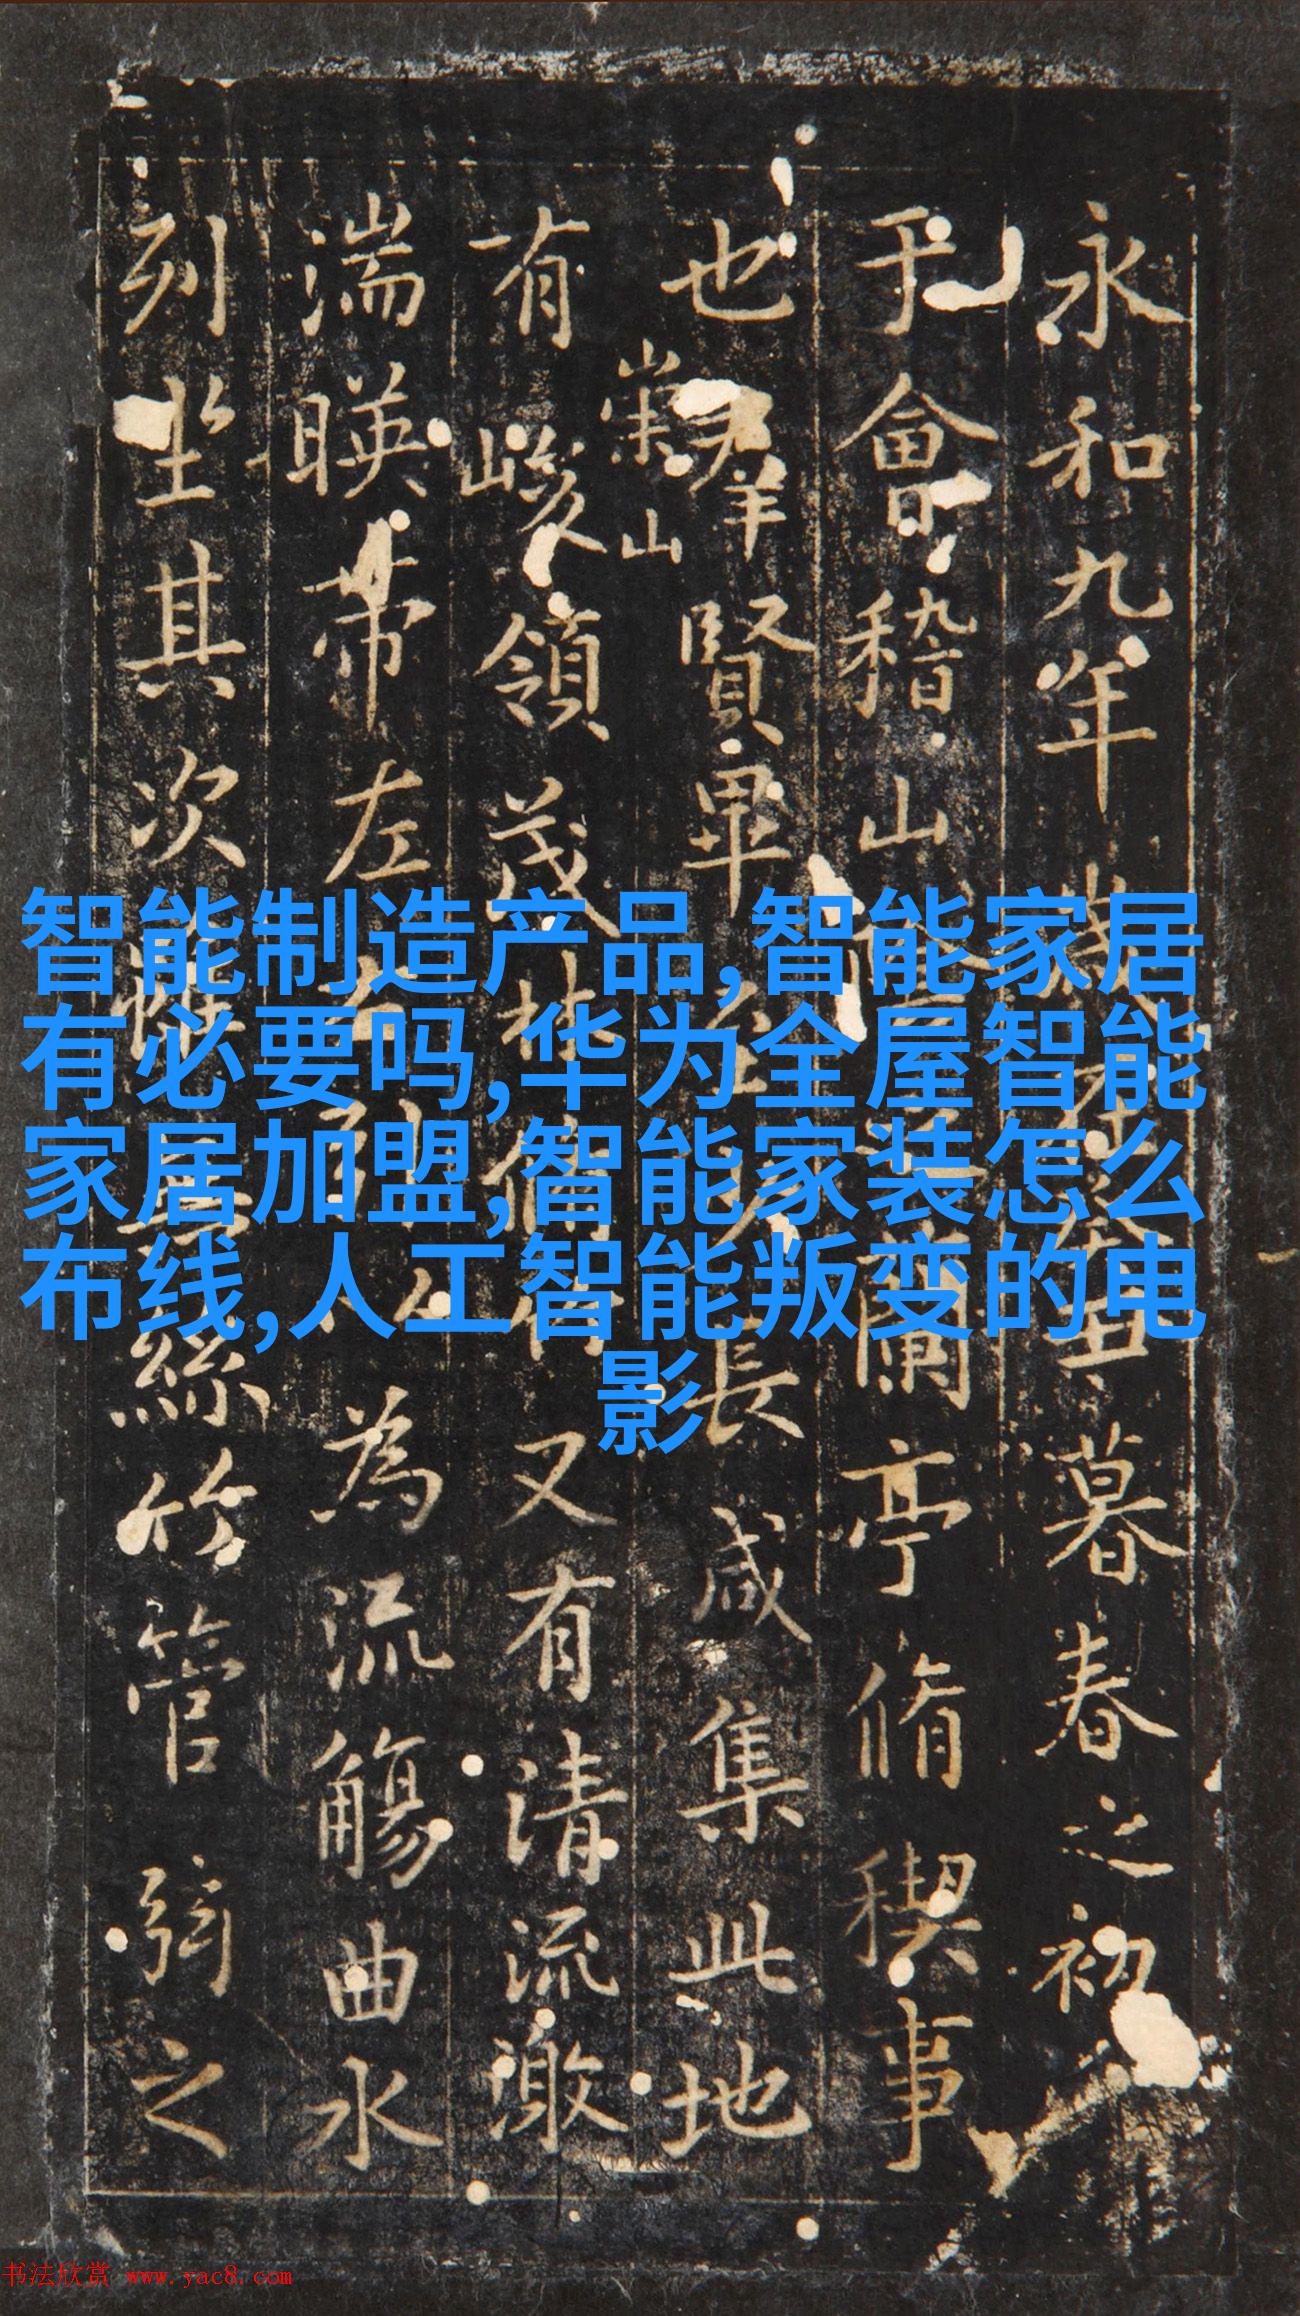 永和九年歲在癸丑暮春之初
于會稽山陰之蘭亭脩稧事
也羣賢畢至少長咸集此地
崇山
有峻領茂林脩竹又有清流激
湍暎帶左右引以為流觴曲水
列坐其次雖無絲竹管弦之
智能制造产品,智能家居
有必要吗,华为全屋智能
家居加盟,智能家装怎么
布线,人工智能叛变的电
影
书法欣赏 www.yac8.com